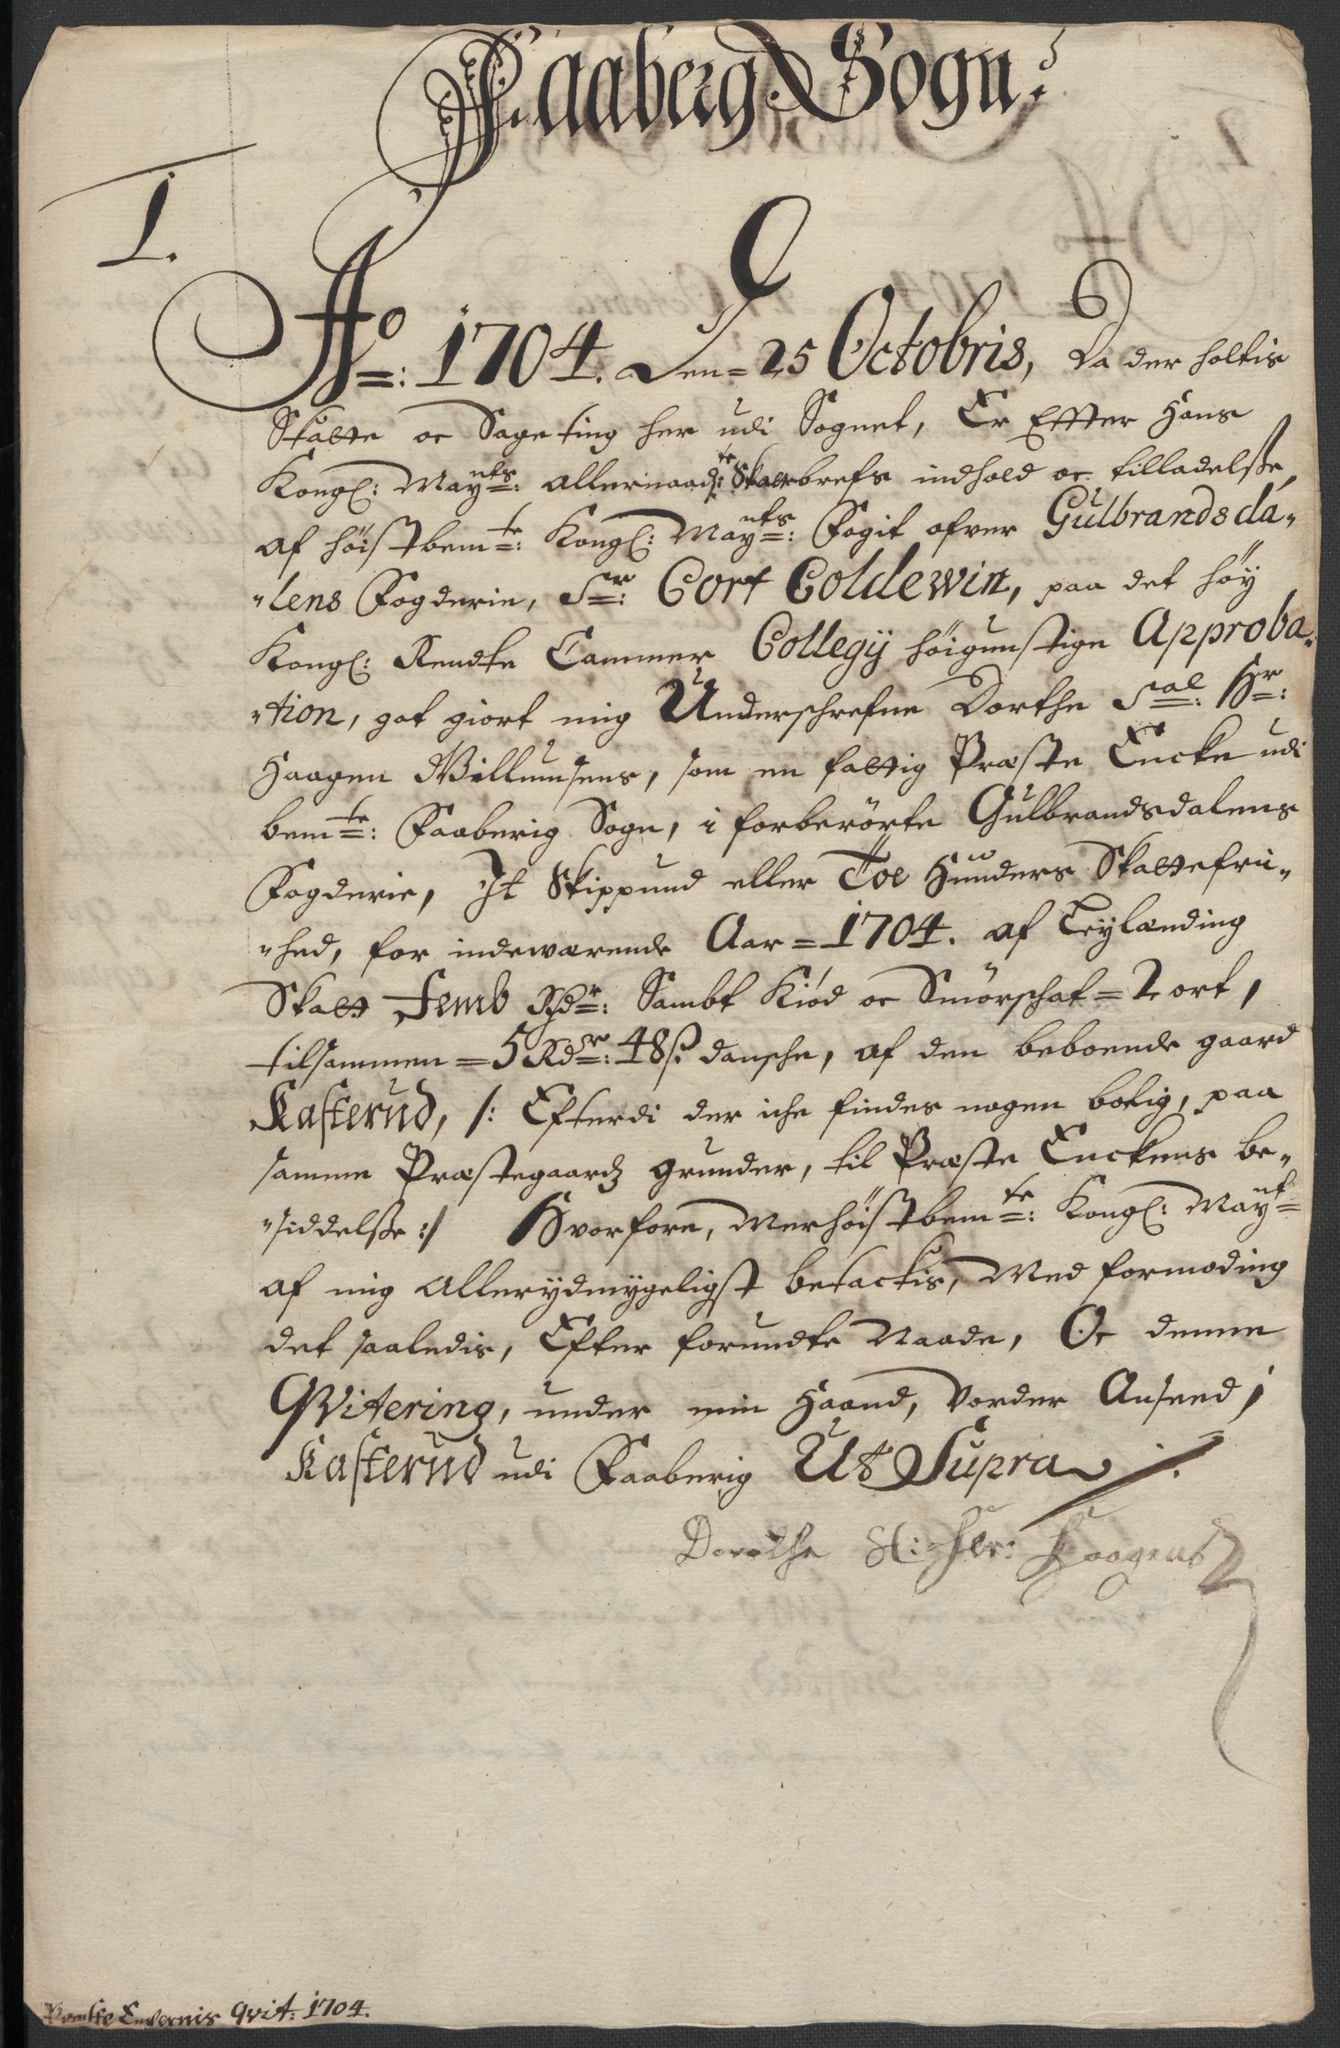 Faaberg Sogn:
1.
Ao: 1704. Den = 25 Octobris, Da der holtis
Skatte oc Sageting her udi Sognet, Er Effter Hans
Kongl: Maÿnts: allernaadste: Skatebrefs indhold oc tilladelsse,
af höistbemte: Kongl: Maÿnts: Fogit ofver Gulbrandsda-
-lens Fogderie, Sr: Cort Coldewin, paa det höy
Kongl: Rendte Cammer Collegÿ höigunstige Approba-
-tion, got giort mig Underschrefne Dorthe Sal: Hr:
Haagen Willumsens, som en fattig Præste Encke udi
bemte: Faaberig Sogn, i forberörte Gulbrandsdalens
Fogderie, Jt Skippund eller Toe Hunders Skattefrii-
-hed, for indeværende Aar = 1704. af Leÿlænding
Skatt Femb Rdr: Sambt Kiöd oc Smörschat = 2 ort,
tilsammen = 5 Rdr: 48 s. dansche, af den beboende gaard
Kasterud, /: Efterdi der iche findes nogen bolig, paa
samme Præstegaardz grunder, til Præste Enckens be-
-siddelsse :/ Hvorfore, Merhöistbemte: Kongl: Maÿnt
af mig allerÿdmÿgeligst betackis, Med formoding
det saaledis, Efter forundte Naade, Oc denne
Qvitering, under min Haand, vorder Anseed,
Kasterud udi Faaberig Ut Supra /.
Dorethe Sl: Her: Haagens
Præste Enckernis qvit: 1704.